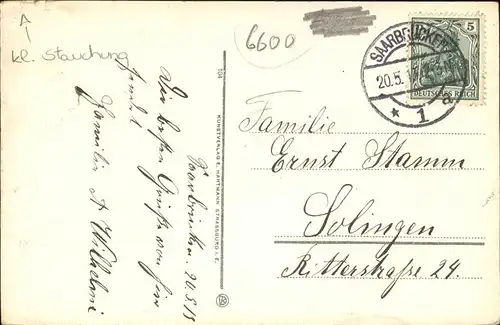 kl. Stauchung
6600
SAARBRÜCKEN
20.5.
* 1 a
5
DEUTSCHES REICH
Saarbrücken 20.5.15
Die besten Grüße von hier
sendet
Familie A. Wilhelmi
104
KUNSTVERLAG E. HARTMANN STRASSBURG I. E.
Familie
Ernst Stamm
Solingen
Ritterstraße 24.